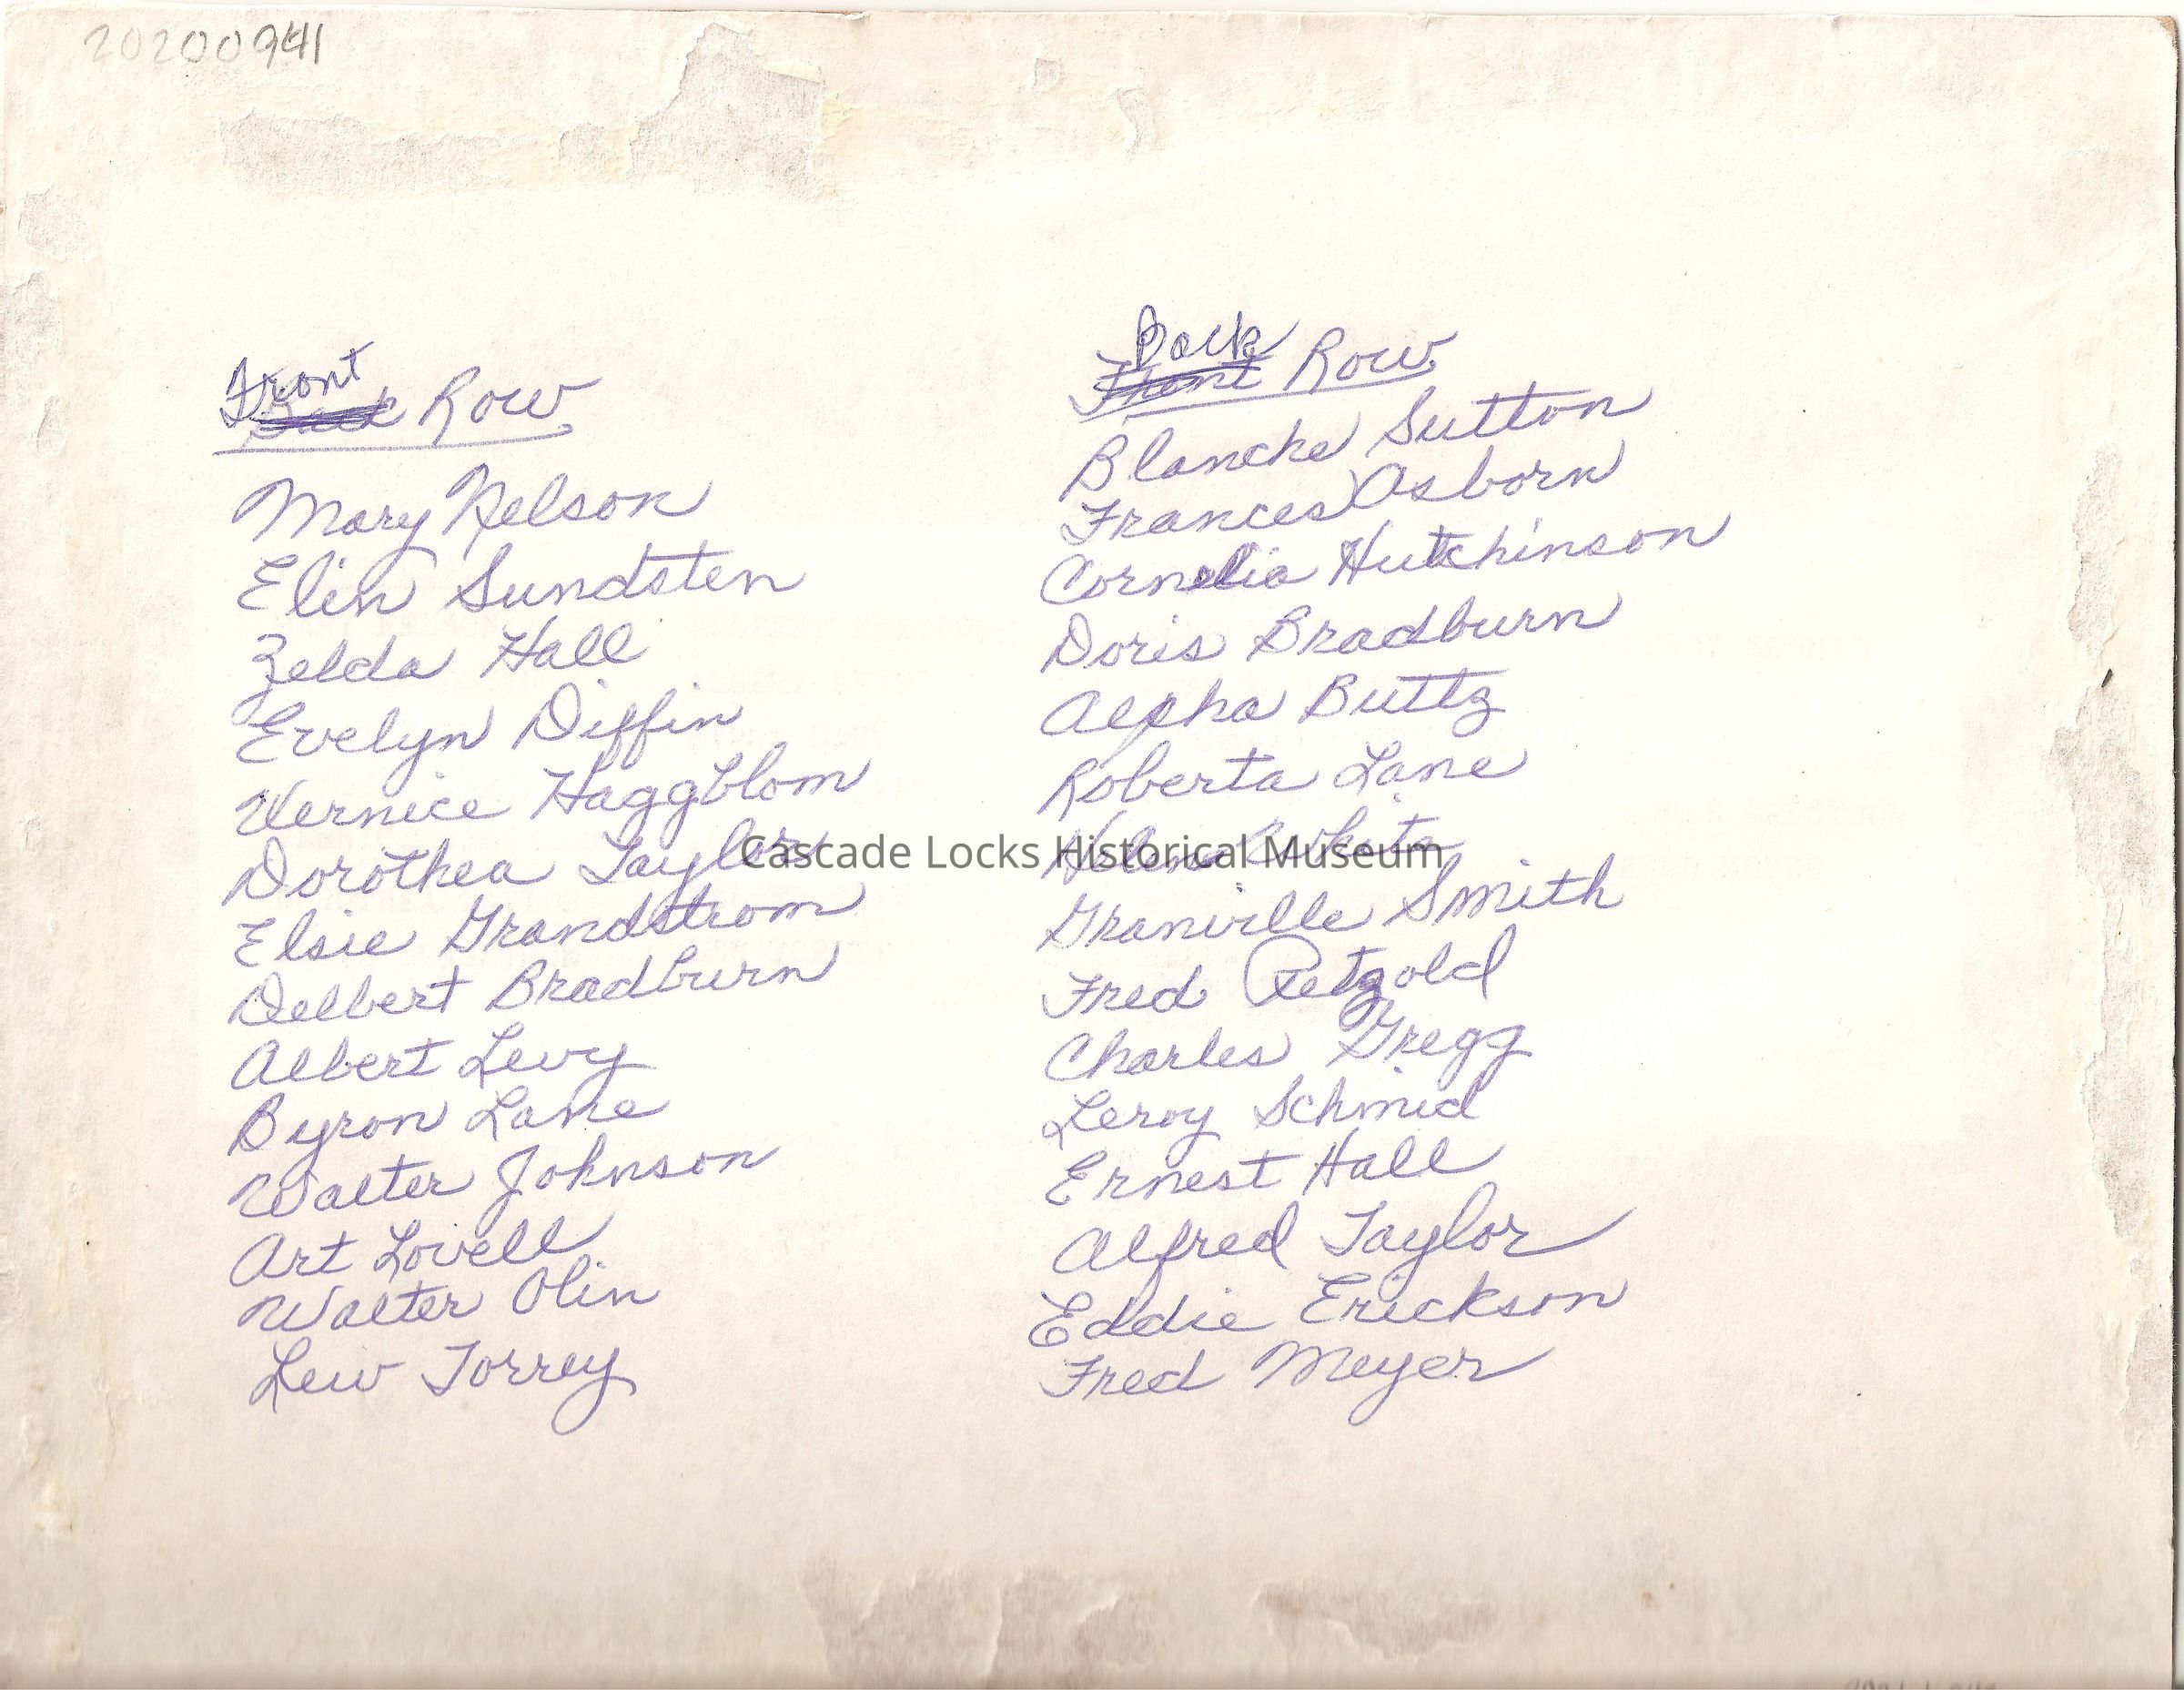 20200941
Front Row
Mary Nelson
Elin Sundsten
Zelda Hall
Evelyn Diffin
Vernice Haggblom
Dorothea Taylor
Elsie Grandstrom
Delbert Bradburn
Albert Levy
Byron Lane
Walter Johnson
Art Lovell
Walter Olin
Lew Torrey
Back Row
Blanche Sutton
Frances Osborn
Cornelia Hutchinson
Doris Bradburn
Alpha Buttz
Roberta Lane
Helen
Granville Smith
Fred Petzold
Charles Gregg
Leroy Schmid
Ernest Hall
Alfred Taylor
Eddie Erickson
Fred Meyer
Cascade Locks Historical Museum